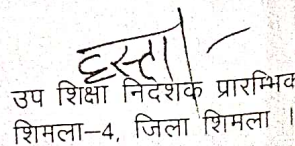 हस्ता/-
उप शिक्षा निदशक प्रारम्भिक
शिमला-4, जिला शिमला ।